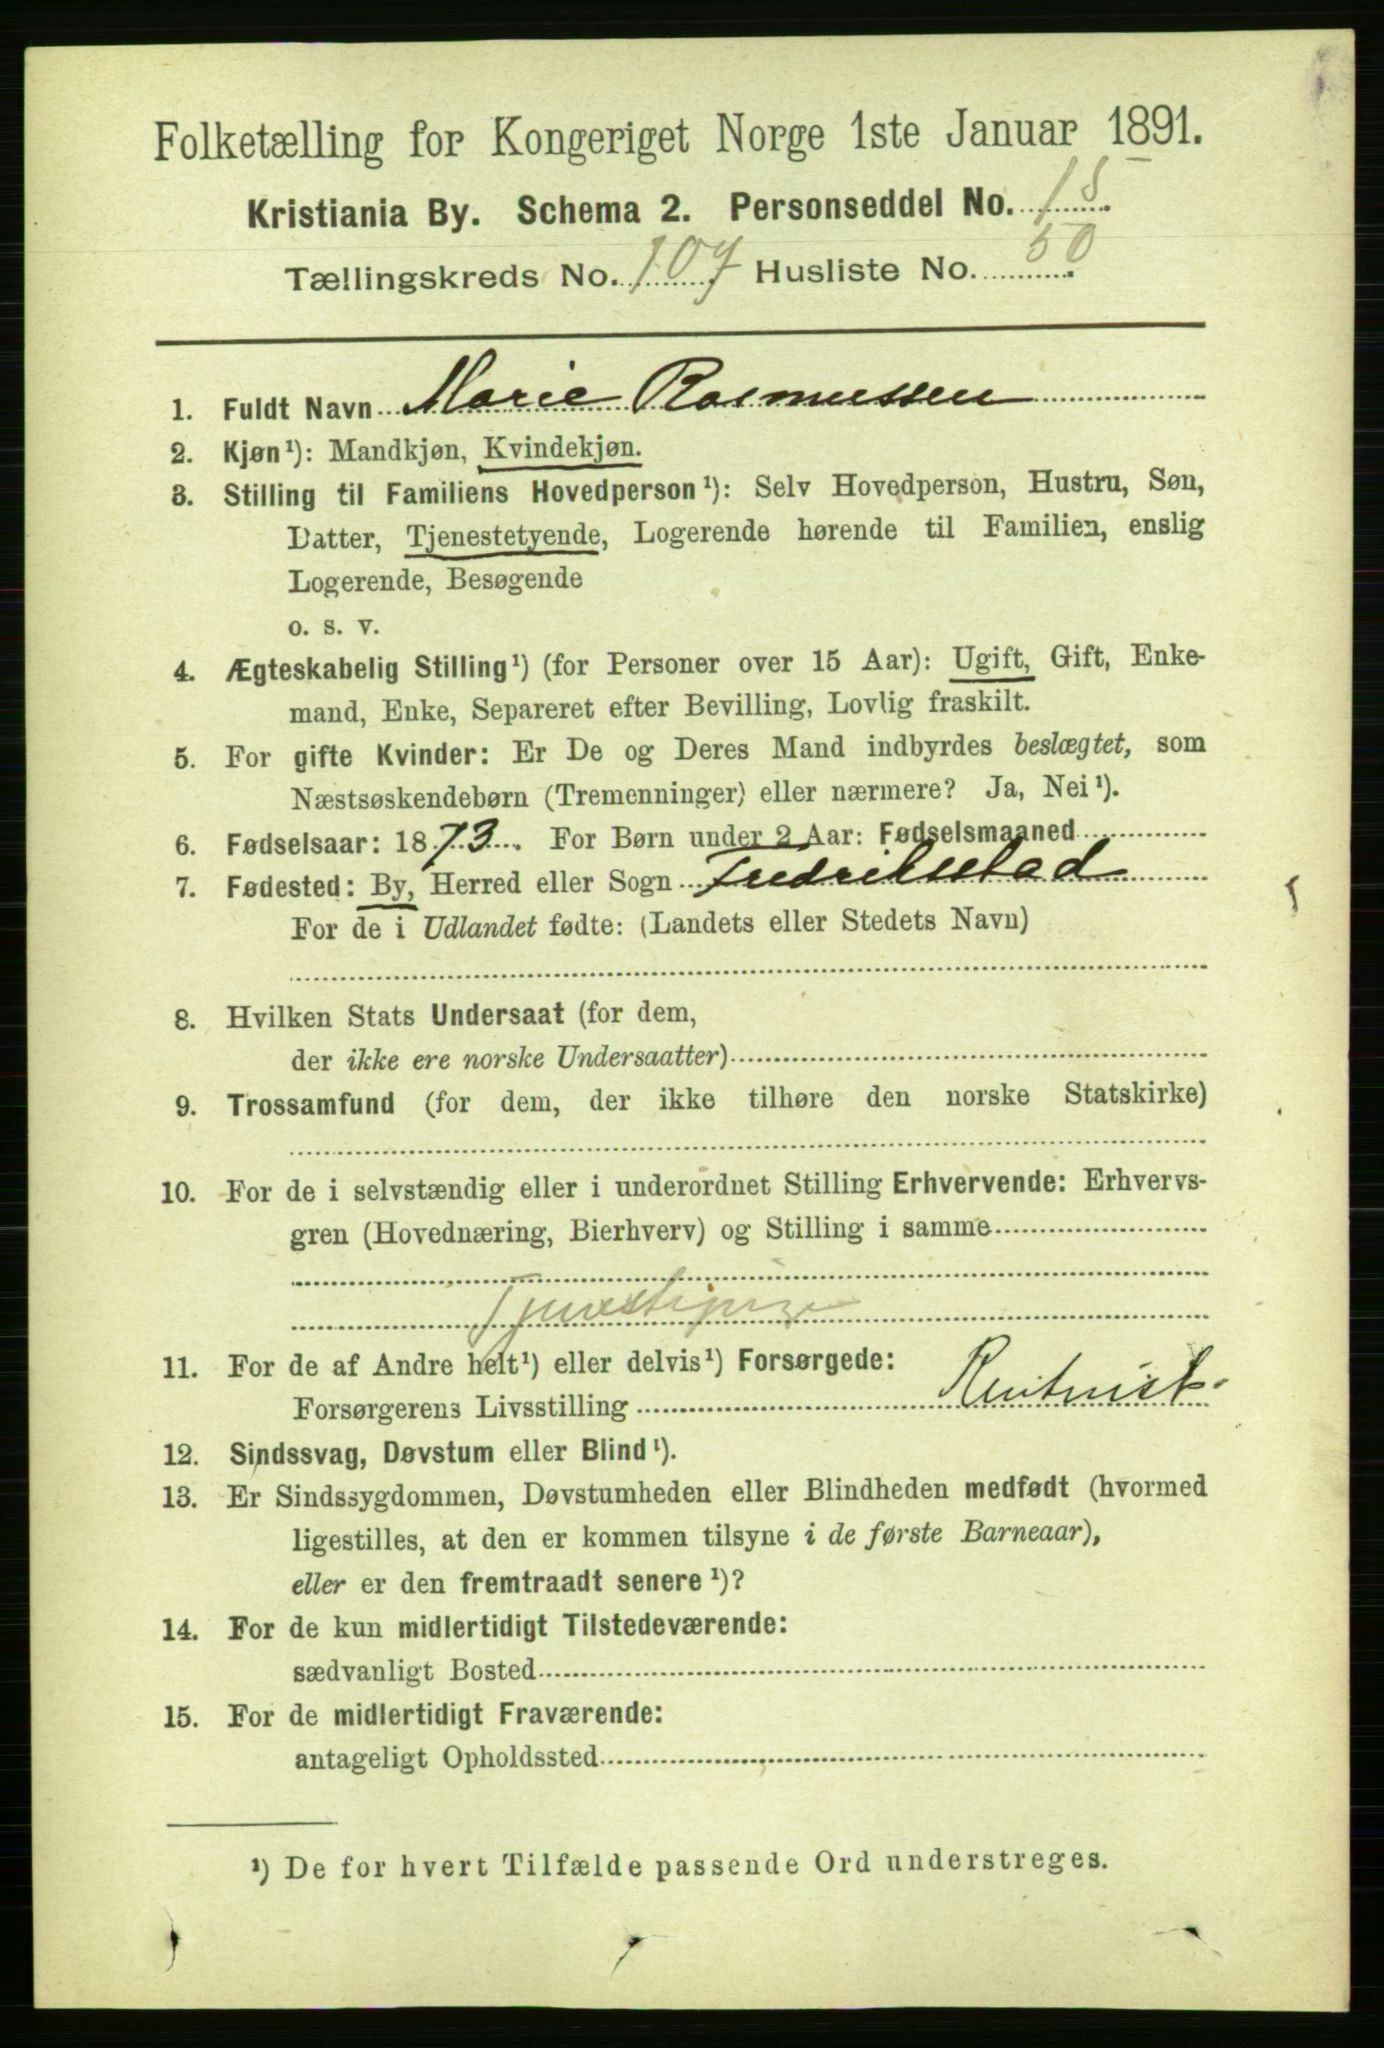 Folketælling for Kongeriget Norge 1ste Januar 1891.
Kristiania By. Schema 2. Personseddel No. 15
Tællingskreds No. 107 Husliste No. 50
1. Fuldt Navn Marie Rasmussen
2. Kjøn¹): Mandkjøn, Kvindekjøn.
3. Stilling til Familiens Hovedperson¹): Selv Hovedperson, Hustru, Søn,
Datter, Tjenestetyende, Logerende hørende til Familien, enslig
Logerende, Besøgende
o. s. v.
4. Ægteskabelig Stilling¹) (for Personer over 15 Aar): Ugift, Gift, Enke-
mand, Enke, Separeret efter Bevilling, Lovlig fraskilt.
5. For gifte Kvinder: Er De og Deres Mand indbyrdes beslægtet, som
Næstsøskendebørn (Tremenninger) eller nærmere? Ja, Nei¹).
6. Fødselsaar: 1873. For Børn under 2 Aar: Fødselsmaaned
7. Fødested: By, Herred eller Sogn Fredrikstad
For de i Udlandet fødte: (Landets eller Stedets Navn)
8. Hvilken Stats Undersaat (for dem,
der ikke ere norske Undersaatter)
9. Trossamfund (for dem, der ikke tilhøre den norske Statskirke)
10. For de i selvstændig eller i underordnet Stilling Erhvervende: Erhvervs-
gren (Hovednæring, Bierhverv) og Stilling i samme
Tjenestepige
11. For de af Andre helt¹) eller delvis¹) Forsørgede:
Forsørgerens Livsstilling Rentenist.
12. Sindssvag, Døvstum eller Blind¹).
13. Er Sindssygdommen, Døvstumheden eller Blindheden medfødt (hvormed
ligestilles, at den er kommen tilsyne i de første Barneaar),
eller er den fremtraadt senere¹)?
14. For de kun midlertidigt Tilstedeværende:
sædvanligt Bosted
15. For de midlertidigt Fraværende:
antageligt Opholdssted
¹) De for hvert Tilfælde passende Ord understreges.